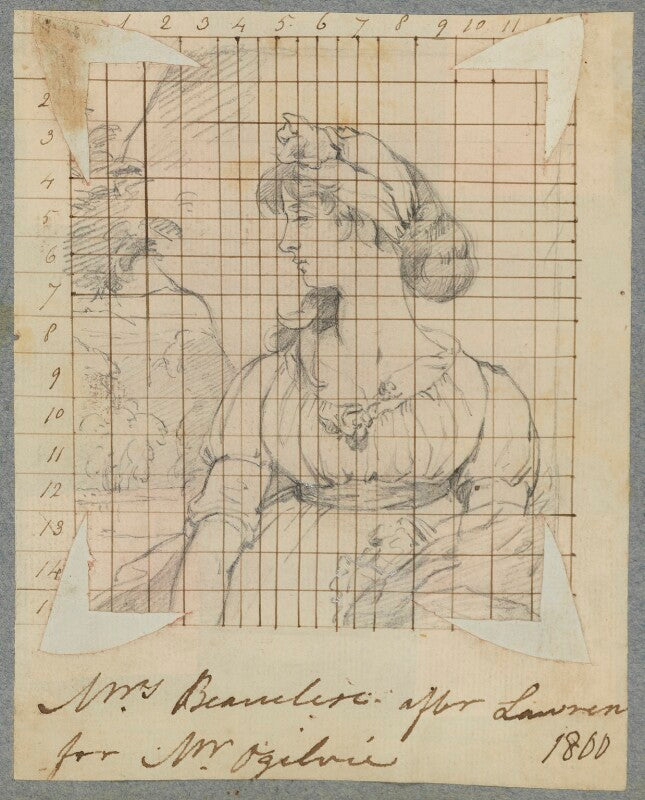 1 2 3 4 5 6 7 8 9 10 11 12
2
3
4
5
6
7
8
9
10
11
12
13
14
1
Mrs Beauclerc. after Lawren
for Mr Ogilvie 1800